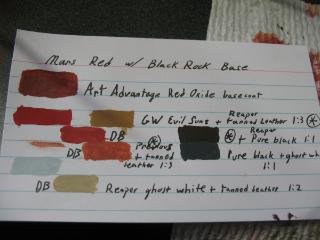 Mars Red w/ Black Rock Base
Art Advantage Red Oxide basecoat
GW Evil Suns + Reaper tanned leather 1:3 *
DB * + Reaper Pure black 1:1
Previous + tanned leather 1:3
DB
Pure black + ghost white 1:1
DB Reaper ghost white + tanned leather 1:2